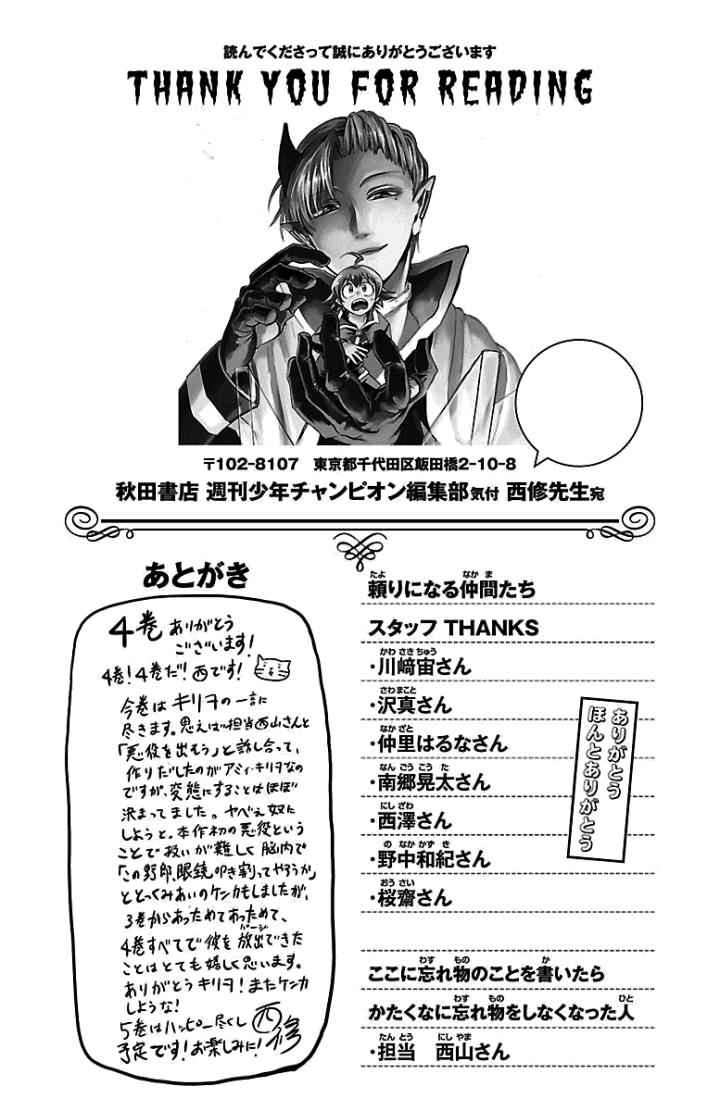 読んでくださって誠にありがとうございます
THANK YOU FOR READING
〒102-8107 東京都千代田区飯田橋2-10-8
秋田書店 週刊少年チャンピオン編集部気付 西修先生宛
あとがき
4巻 ありがとう
ございます!
4巻!4巻だ!西です!
今巻はキリヲの一言に
尽きます。思えば担当西山さんと
「悪役を出もう」と話し合って、
作りだしたのがアミィ・キリヲなの
ですが、変態にすることはほぼ
決まってました。ヤベェ奴に
しようと。本作初の悪役という
ことで扱いが難しく脳内で
「この野郎、眼鏡叩き割ってやろうか」
ととっくみあいのケンカもしましたが、
3巻からあっためてあっためて、
4巻すべてで彼を放出できた
パージ
ことはとても嬉しく思います。
ありがとうキリヲ!またケンカ
しような!
5巻はハッピー尽くし
予定です!お楽しみに!
西修
たよ なかま
頼りになる仲間たち
スタッフ THANKS
かわさきちゅう
・川﨑宙さん
さわまこと
・沢真さん
なかざと
・仲里はるなさん
なんごうこうた
・南郷晃太さん
にしざわ
・西澤さん
のなかかずき
・野中和紀さん
おうさい
・桜齋さん
ありがとう
ほんとありがとう
わす もの か
ここに忘れ物のことを書いたら
わす もの ひと
かたくなに忘れ物をしなくなった人
たんとう にしやま
・担当 西山さん